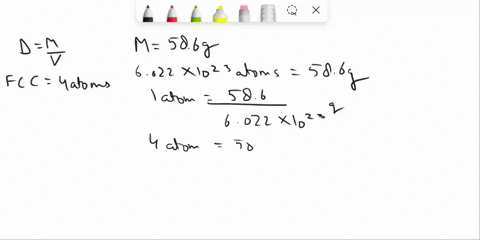 D = M/V
FCC = 4 atoms
M = 58.6g
6.022 × 10²³ atoms = 58.6g
1 atom = 58.6 / 6.022 × 10²³ g
4 atom = 58